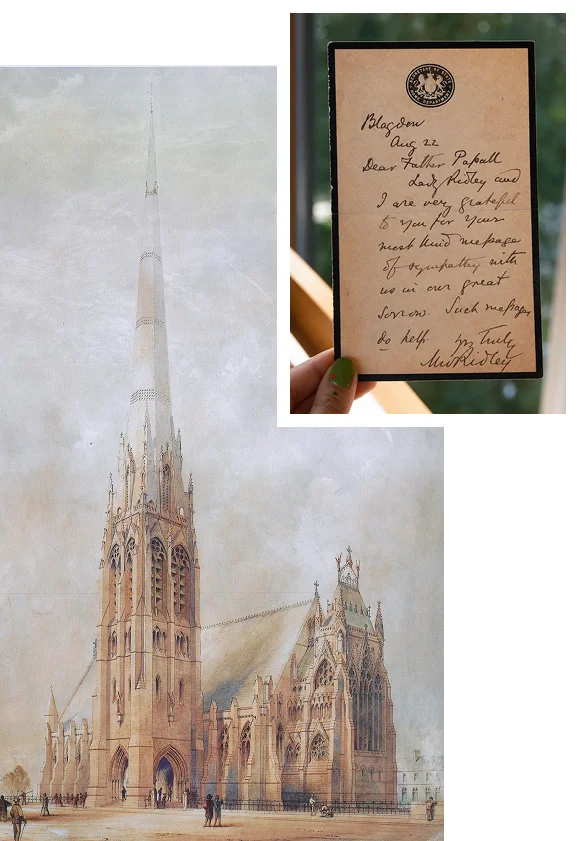 SECRETARY OF STATE
HOME DEPARTMENT
Blagdon
Aug 22
Dear Father Papall
Lady Ridley and
I are very grateful
to you for your
most kind message
of sympathy with
us in our great
sorrow. Such messages
do help. Yrs Truly
MWRidley